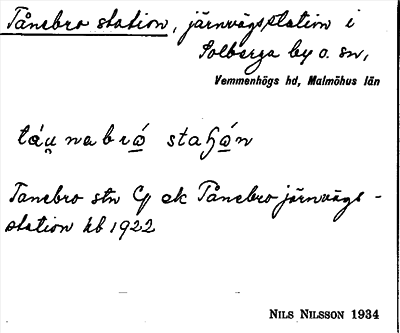 Tånebro station, järnvägsstation i
Solberga by o. sn,
Vemmenhögs hd, Malmöhus län
táu̯nabró staɧón
Tanebro stn Cp ek Tånebro järnvägs-
station kb 1922
NILS NILSSON 1934